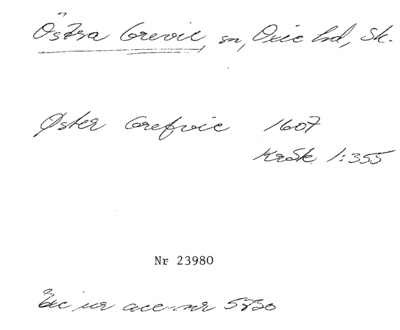 Östra Grevie, sn, Oxie hd, Sk.
Øster Grefvie 1607
KrSk 1:355
Nr 23980
Exc ur acc-nr 5820